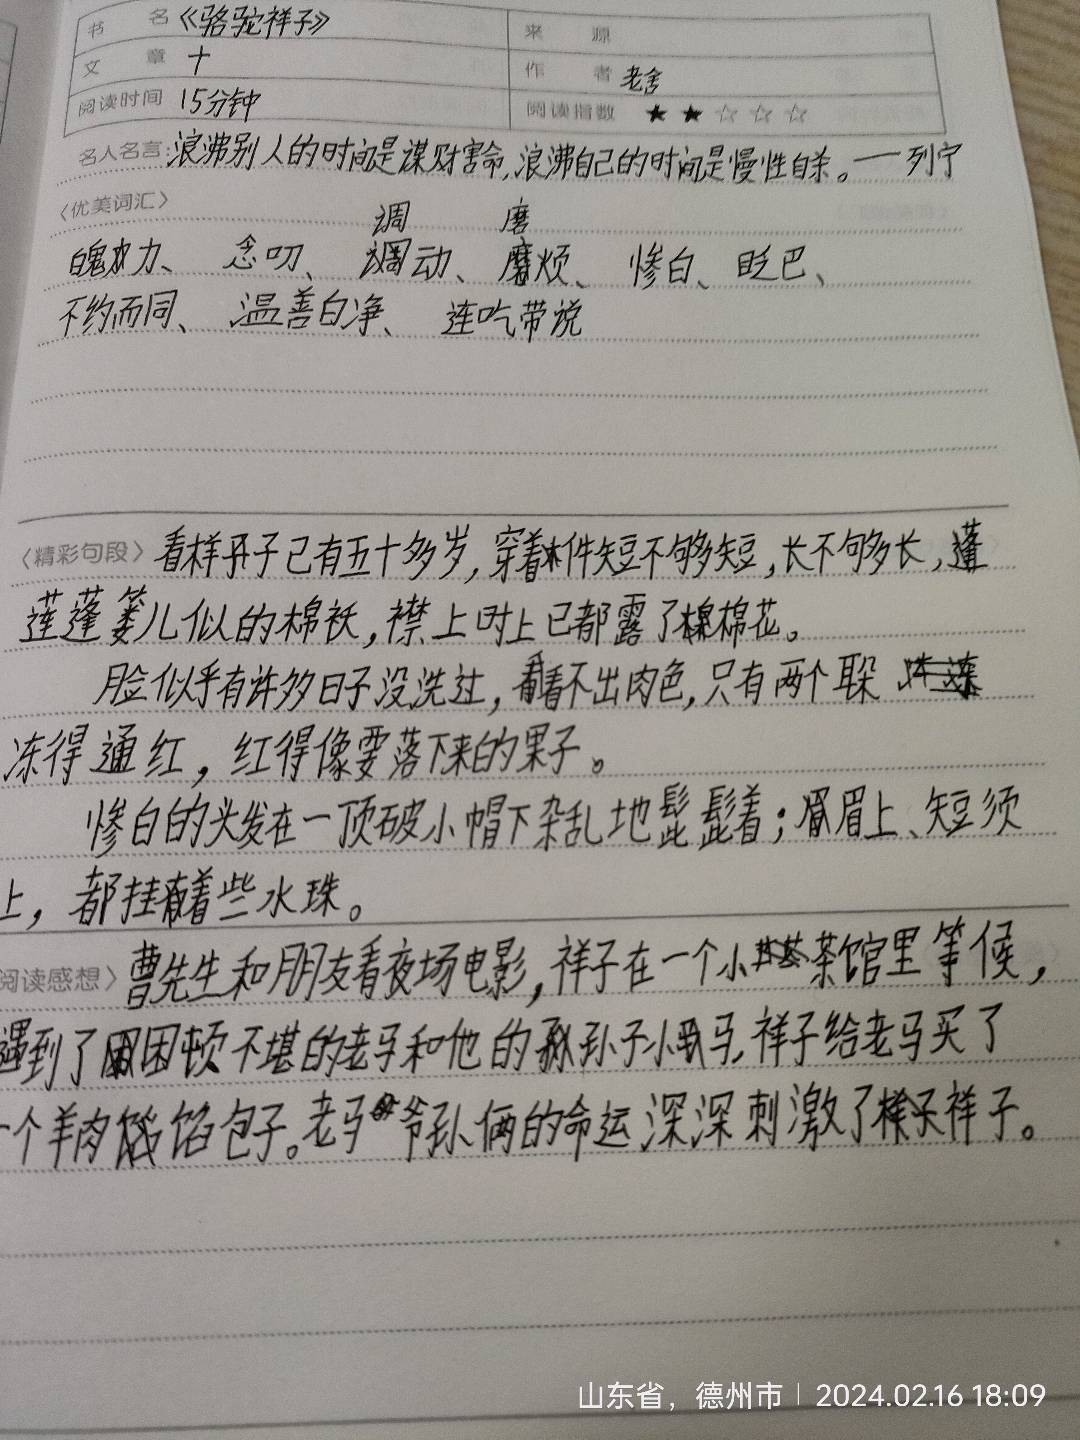 书 名 《骆驼祥子》 来 源
文 章 十 作 者 老舍
阅读时间 15分钟 阅读指数 ★★☆☆☆
名人名言:浪沸别人的时间是谋财害命,浪沸自己的时间是慢性自杀。——列宁
〈优美词汇〉 调 磨
魄力、 念叨、 调动、 磨烦、 惨白、 眨巴、
不约而同、 温善白净、 连吃带说
〈精彩句段〉看样子已有五十多岁,穿着件短不够短,长不够长,蓬
莲蓬篓儿似的棉袄,襟上时上已都露了棉花。
脸似乎有许多日子没洗过,看不出肉色,只有两个耳朵
冻得通红,红得像要落下来的果子。
惨白的头发在一顶破小帽下杂乱地髭髭着;眉上、短须
上,都挂着些水珠。
阅读感想〉曹先生和朋友看夜场电影,祥子在一个小茶馆里等候,
遇到了困顿不堪的老马和他的孙子小马,祥子给老马买了
一个羊肉馅包子。老马爷孙俩的命运深深刺激了祥子。
山东省,德州市 | 2024.02.16 18:09